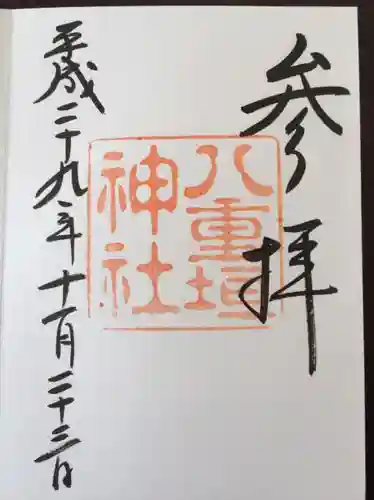 参拝
八重垣
神社
平成二十九年十一月二十三日